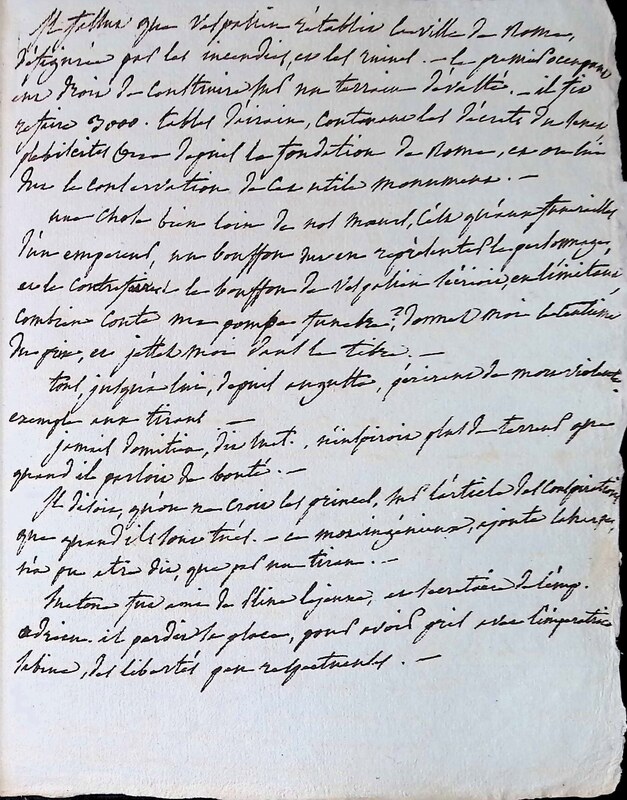 Il fallut que Vespasien rétablir la ville de Rome,
défigurée par les incendies, et les ruines. — le premier occupant
eut droit de construire sur un terrain dévasté. — il fit
refaire 3000. tables d'airain, contenant les décrets du senat
plebiscites &ca depuis la fondation de Rome, et veilla
sur la conservation de cet utile monument. —
une chose bien loin de nos mœurs, c'est qu'aux funerailles
d'un empereur, un bouffon dut en représenter le personnage,
et le contrefaire. le bouffon de Vespasien s'écrioit, en l'imitant,
combien coute ma pompe funebre? donnez moi le centieme
du prix, et jettez moi dans le tibre. —
tous, jusqu'à lui, depuis auguste, périrent de mort violente.
exemple aux tirans —
jamais domitien, dit Suet., n'inspiroit plus de terreur que
quand il parloit de bonté. —
Il disoit, qu'on ne croit les princes, sur l'article des conspirations
que quand ils sont tués. — ce mot ingénieux, ajoute laharpe,
n'a pu etre dit, que par un tiran. —
Suetone fut ami de Pline le jeune, et secretaire de l'emp.
adrien. il perdit sa place, pour avoir pris avec l'imperatrice
Sabine, des libertés peu respectueuses. —